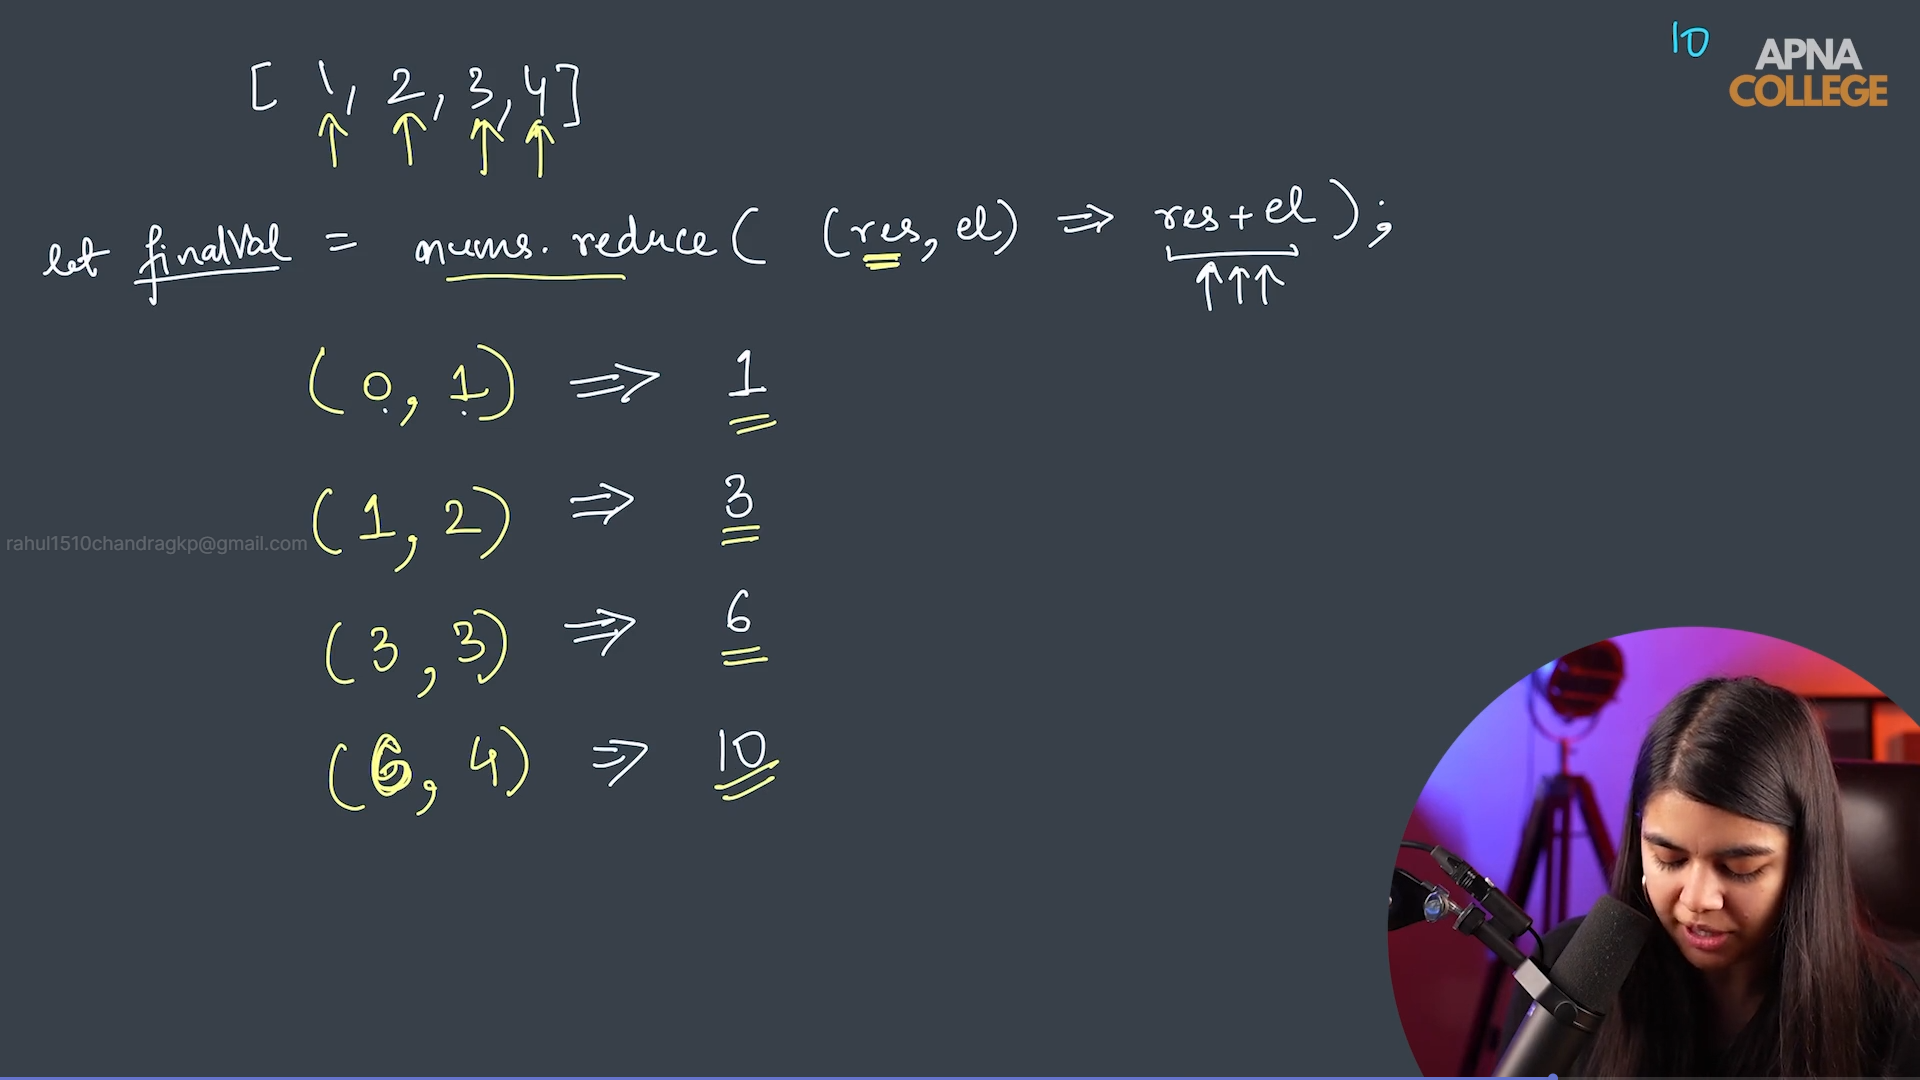 10
APNA
COLLEGE
[ 1, 2, 3, 4 ]
let finalVal = nums.reduce( (res, el) => res + el );
(0, 1) => 1
(1, 2) => 3
rahul1510chandragkp@gmail.com
(3, 3) => 6
(6, 4) => 10